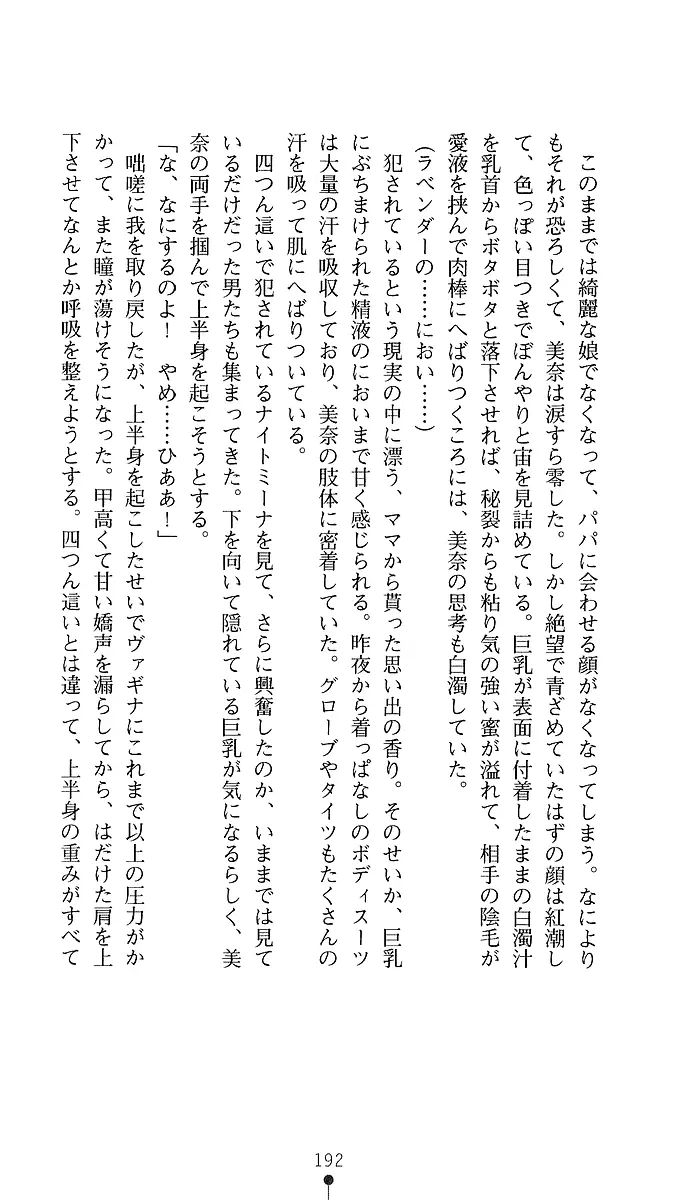 このままでは綺麗な娘でなくなって、パパに会わせる顔がなくなってしまう。なにより
もそれが恐ろしくて、美奈は涙すら零した。しかし絶望で青ざめていたはずの顔は紅潮し
て、色っぽい目つきでぼんやりと宙を見詰めている。巨乳が表面に付着したままの白濁汁
を乳首からボタボタと落下させれば、秘裂からも粘り気の強い蜜が溢れて、相手の陰毛が
愛液を挟んで肉棒にへばりつくころには、美奈の思考も白濁していた。
(ラベンダーの……におい……)
犯されているという現実の中に漂う、ママから貰った思い出の香り。そのせいか、巨乳
にぶちまけられた精液のにおいまで甘く感じられる。昨夜から着っぱなしのボディスーツ
は大量の汗を吸収しており、美奈の肢体に密着していた。グローブやタイツもたくさんの
汗を吸って肌にへばりついている。
四つん這いで犯されているナイトミーナを見て、さらに興奮したのか、いままでは見て
いるだけだった男たちも集まってきた。下を向いて隠れている巨乳が気になるらしく、美
奈の両手を掴んで上半身を起こそうとする。
「な、なにするのよ！　やめ……ひああ！」
咄嗟に我を取り戻したが、上半身を起こしたせいでヴァギナにこれまで以上の圧力がか
かって、また瞳が蕩けそうになった。甲高くて甘い嬌声を漏らしてから、はだけた肩を上
下させてなんとか呼吸を整えようとする。四つん這いとは違って、上半身の重みがすべて
192